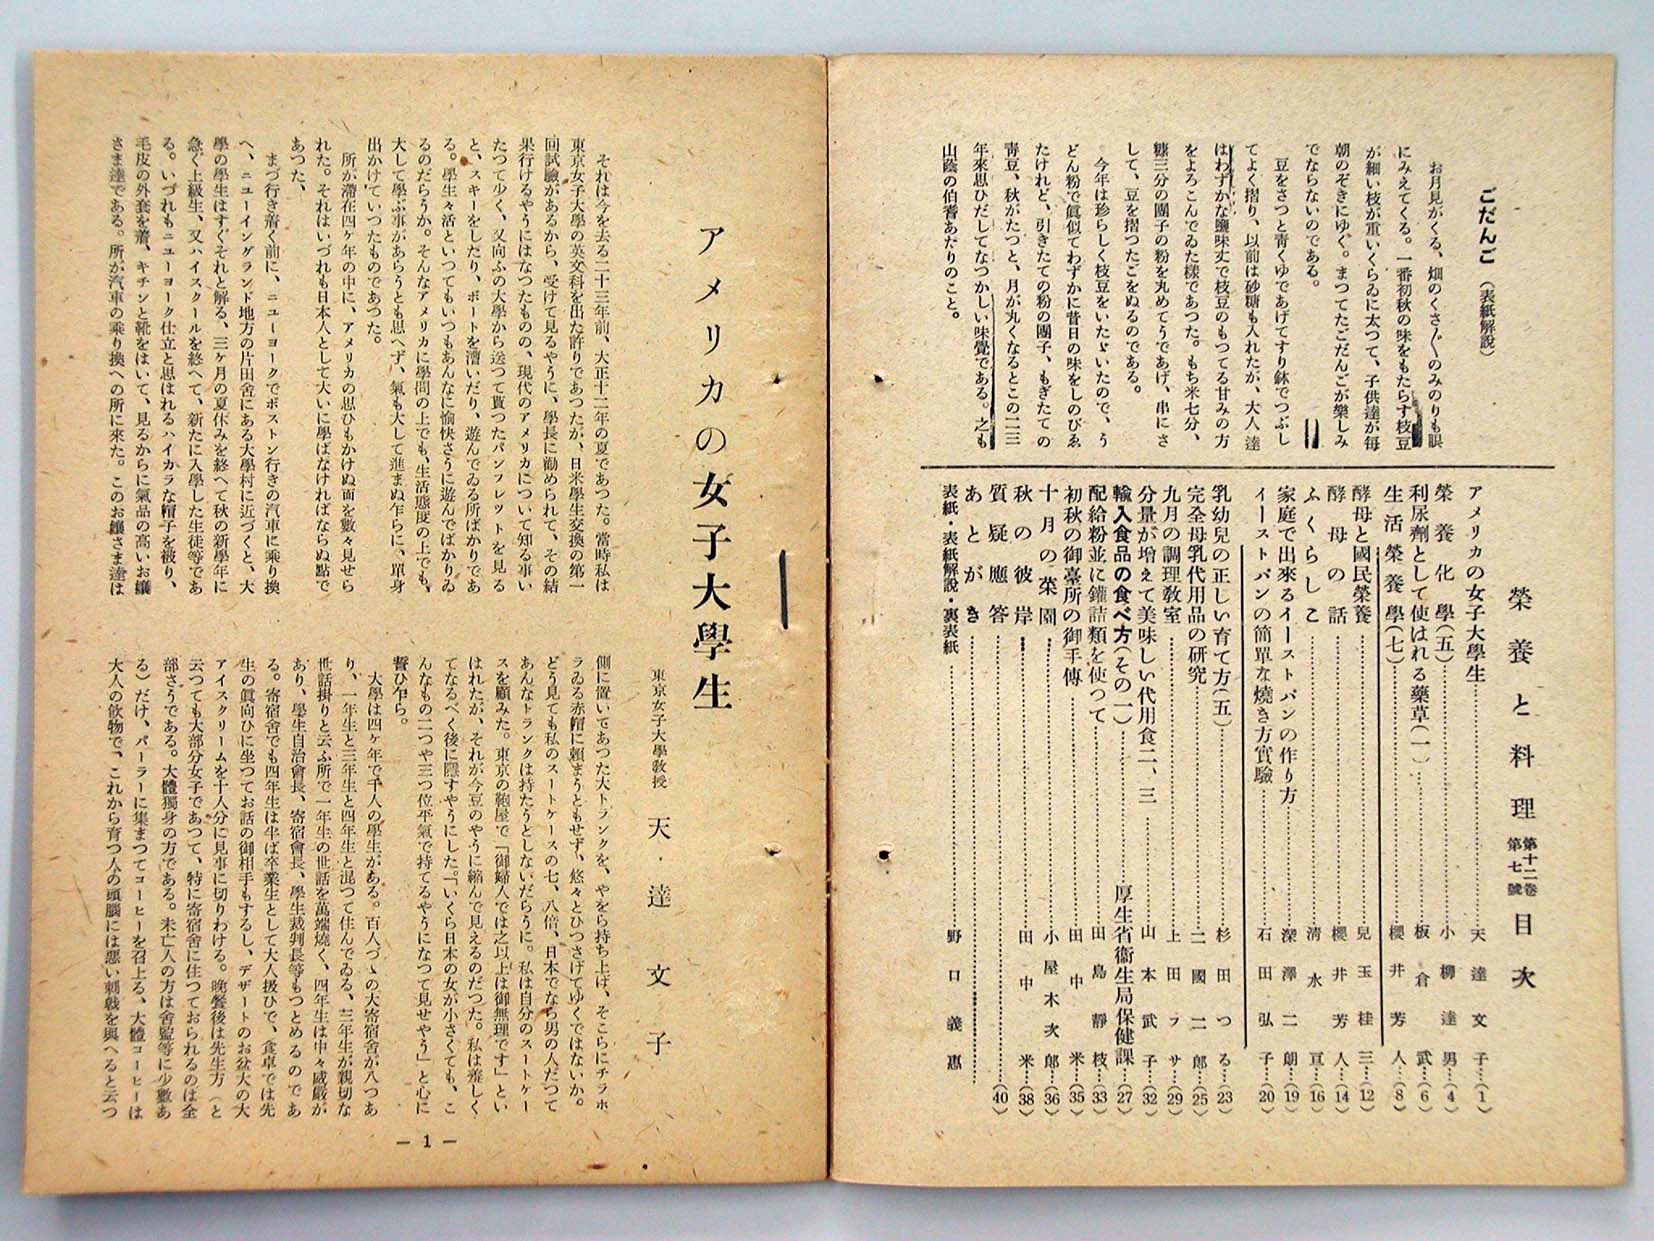 ごだんご (表紙解説)
お月見がくる、畑のくさ〴〵のみのりも眼
にみえてくる。一番初秋の味をもたらす枝豆
が細い枝が重いくらゐに太つて、子供達が毎
朝のぞきにゆく。まつてたごだんごが樂しみ
でならないのである。
豆をさつと靑くゆであげてすり鉢でつぶし
てよく摺り、以前は砂糖も入れたが、大人達
はわずかな鹽味丈で枝豆のもつてる甘みの方
をよろこんでゐた樣であつた。もち米七分、
糠三分の團子の粉を丸めてうであげ、串にさ
して、豆を摺つたこをぬるのである。
今年は珍らしく枝豆をいたゞいたので、う
どん粉で眞似てわずかに昔日の味をしのびゐ
たけれど、引きたての粉の團子、もぎたての
靑豆、秋がたつと、月が丸くなるとこの二三
年來思ひだしてなつかしい味覺である。之も
山蔭の伯耆あたりのこと。
榮養と料理 第十二卷 第七號 目次
アメリカの女子大學生……天達文子…(1)
榮養化學(五)……小柳達男…(4)
利尿劑として使はれる藥草(一)……板倉武…(6)
生活榮養學(七)……櫻井芳人…(8)
酵母と國民榮養……兒玉桂三…(12)
酵母の話……櫻井芳人…(14)
ふくらしこ……淸水亘…(16)
家庭で出來るイーストパンの作り方……深澤二朗…(19)
イーストパンの簡單な燒き方實驗……石田弘子…(20)
乳幼兒の正しい育て方(五)……杉田つる…(23)
完全母乳代用品の研究……二國二郎…(25)
九月の調理教室……上田フサ…(29)
分量が增えて美味しい代用食二、三……山本武子…(32)
輸入食品の食べ方(その一)……厚生省衞生局保健課…(27)
配給粉並に罐詰類を使つて……田島靜枝…(33)
初秋の御臺所の御手傳……田中米…(35)
十月の菜園……小屋木次郎…(36)
秋の彼岸……田中米…(38)
質疑應答……(40)
あとがき……
表紙・表紙解說・裏表紙……野口義惠
アメリカの女子大學生
東京女子大學敎授 天達文子
それは今を去る二十三年前、大正十二年の夏であつた。當時私は
東京女子大學の英文科を出た許りであつたが、日米學生交換の第一
回試驗があるから、受けて見るやうに、學長に勸められて、その結
果行けるやうにはなつたものの、現代のアメリカについて知る事い
たつて少く、又向ふの大學から送つて貰つたパンフレツトを見る
と、スキーをしたり、ボートを漕いだり、遊んでゐる所ばかりであ
る。學生々活といつてもいつもあんなに愉快さうに遊んでばかりゐ
るのだらうか。そんなアメリカに學問の上でも、生活態度の上でも、
大して學ぶ事があらうとも思へず、氣も大して進まぬ乍らに、單身
出かけていつたものであつた。
所が滯在四ケ年の中に、アメリカの思ひもかけぬ面を數々見せら
れた。それはいづれも日本人として大いに學ばなければならぬ點で
あつた、
まづ行き着く前に、ニユーヨークでボストン行きの汽車に乘り換
へ、ニユーイングランド地方の片田舍にある大學村に近づくと、大
學の學生はすぐそれと解る、三ケ月の夏休みを終へて秋の新學年に
急ぐ上級生、又ハイスクールを終へて、新たに入學した生徒等であ
る。いづれもニユーヨーク仕立と思はれるハイカラな帽子を被り、
毛皮の外套を着、キチンと靴をはいて、見るからに氣品の高いお孃
さま達である。所が汽車の乘り換への所に來た。このお孃さま達は
側に置いてあつた大トランクを、やをら持ち上げ、そこらにチラホ
ラゐる赤帽に賴まうともせず、悠々とひつさげてゆくではないか。
どう見ても私のスートケースの七、八倍、日本でなら男の人だつて
あんなトランクは持たうとしないだらうに。私は自分のスートケー
スを顧みた。東京の鞄屋で「御婦人では之以上は御無理です」とい
はれたが、それが今豆のやうに縮んで見えるのだつた。私は雅しく
てなるべく後に隱すやうにした。「いくら日本の女が小さくても、こ
んなもの二つや三つ位平氣で持てるやうになつて見せやう」と心に
誓ひ乍ら。
大學は四ケ年で千人の學生がある。百人づゝの大寄宿舍が八つあ
り、一年生と三年生と四年生と混つて住んでゐる、三年生が親切な
世話掛りと云ふ所で一年生の世話を萬端燒く、四年生は中々威嚴が
あり、學生自治會長、寄宿會長、學生裁判長等もつとめるのであ
る。寄宿舍でも四年生は半ば卒業生として大人扱ひで、食卓では先
生の眞向ひに坐つてお話の御相手もするし、デザートのお盆大の大
アイスクリームを十人分に見事に切りわける。晩餐後は先生方(と
云つても大部分女子であつて、特に寄宿舍に住つておられるのは全
部さうである。大體獨身の方である。未亡人の方は舍監等に少數あ
る)だけ、パーラーに集まつてコーヒーを召上る、大體コーヒーは
大人の飮物で、これから育つ人の頭腦には惡い刺戟を與へると云つ
— 1 —